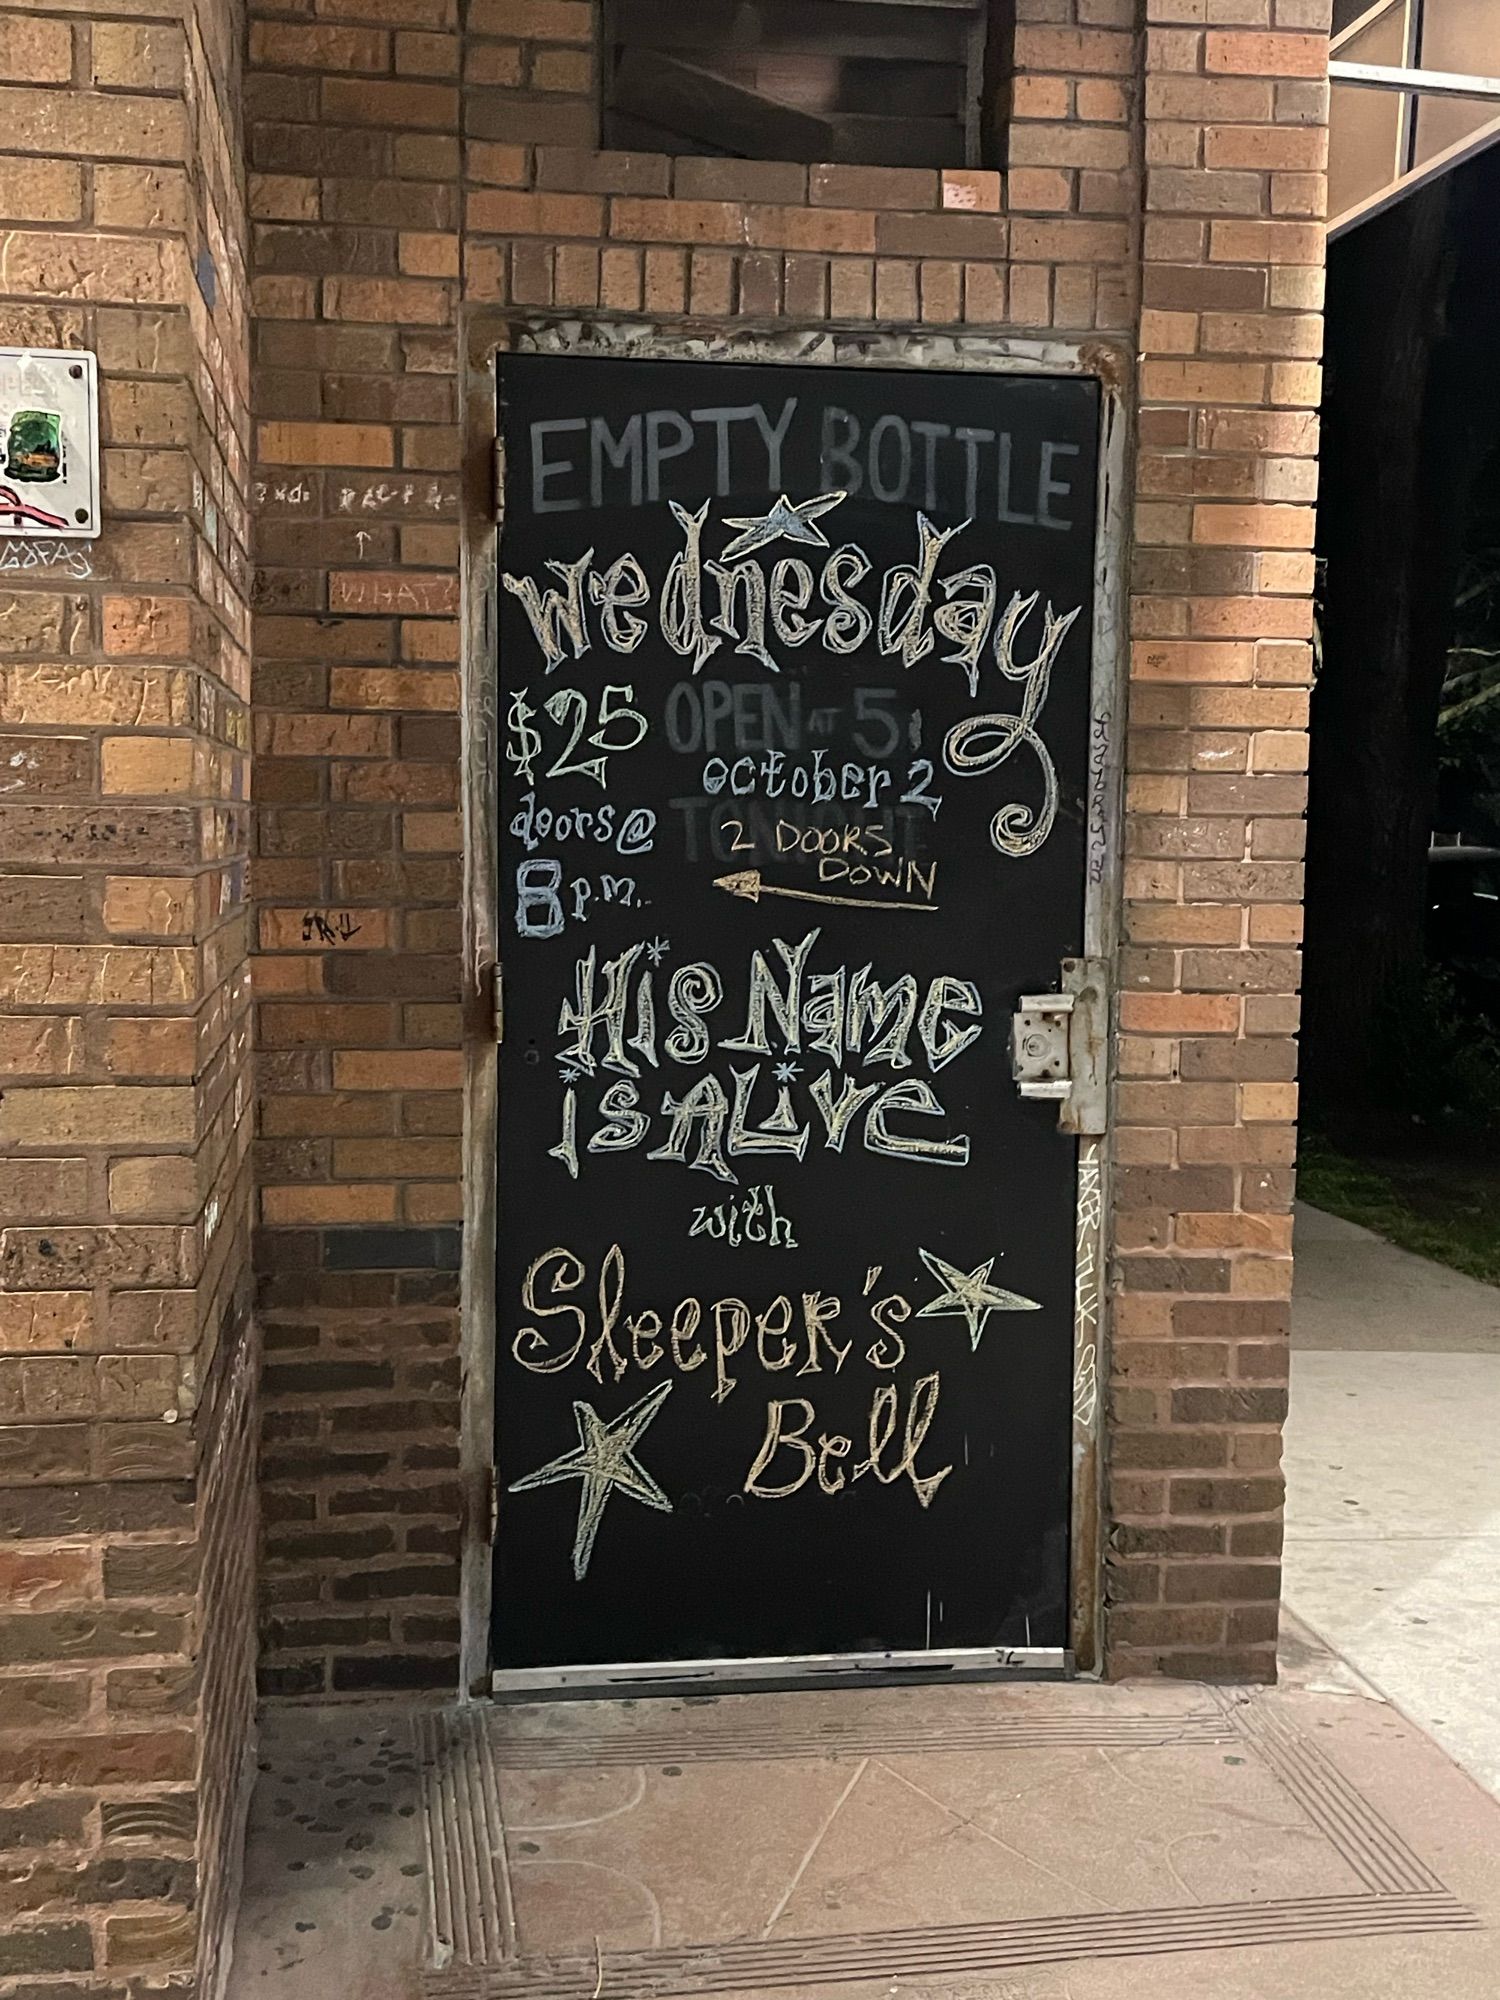 EMPTY BOTTLE
wednesday
$25
OPEN AT 5
october 2
doors@
TONIGHT
2 DOORS
DOWN
8 p.m.
His Name
is Alive
with
Sleeper's
Bell
WHAT?